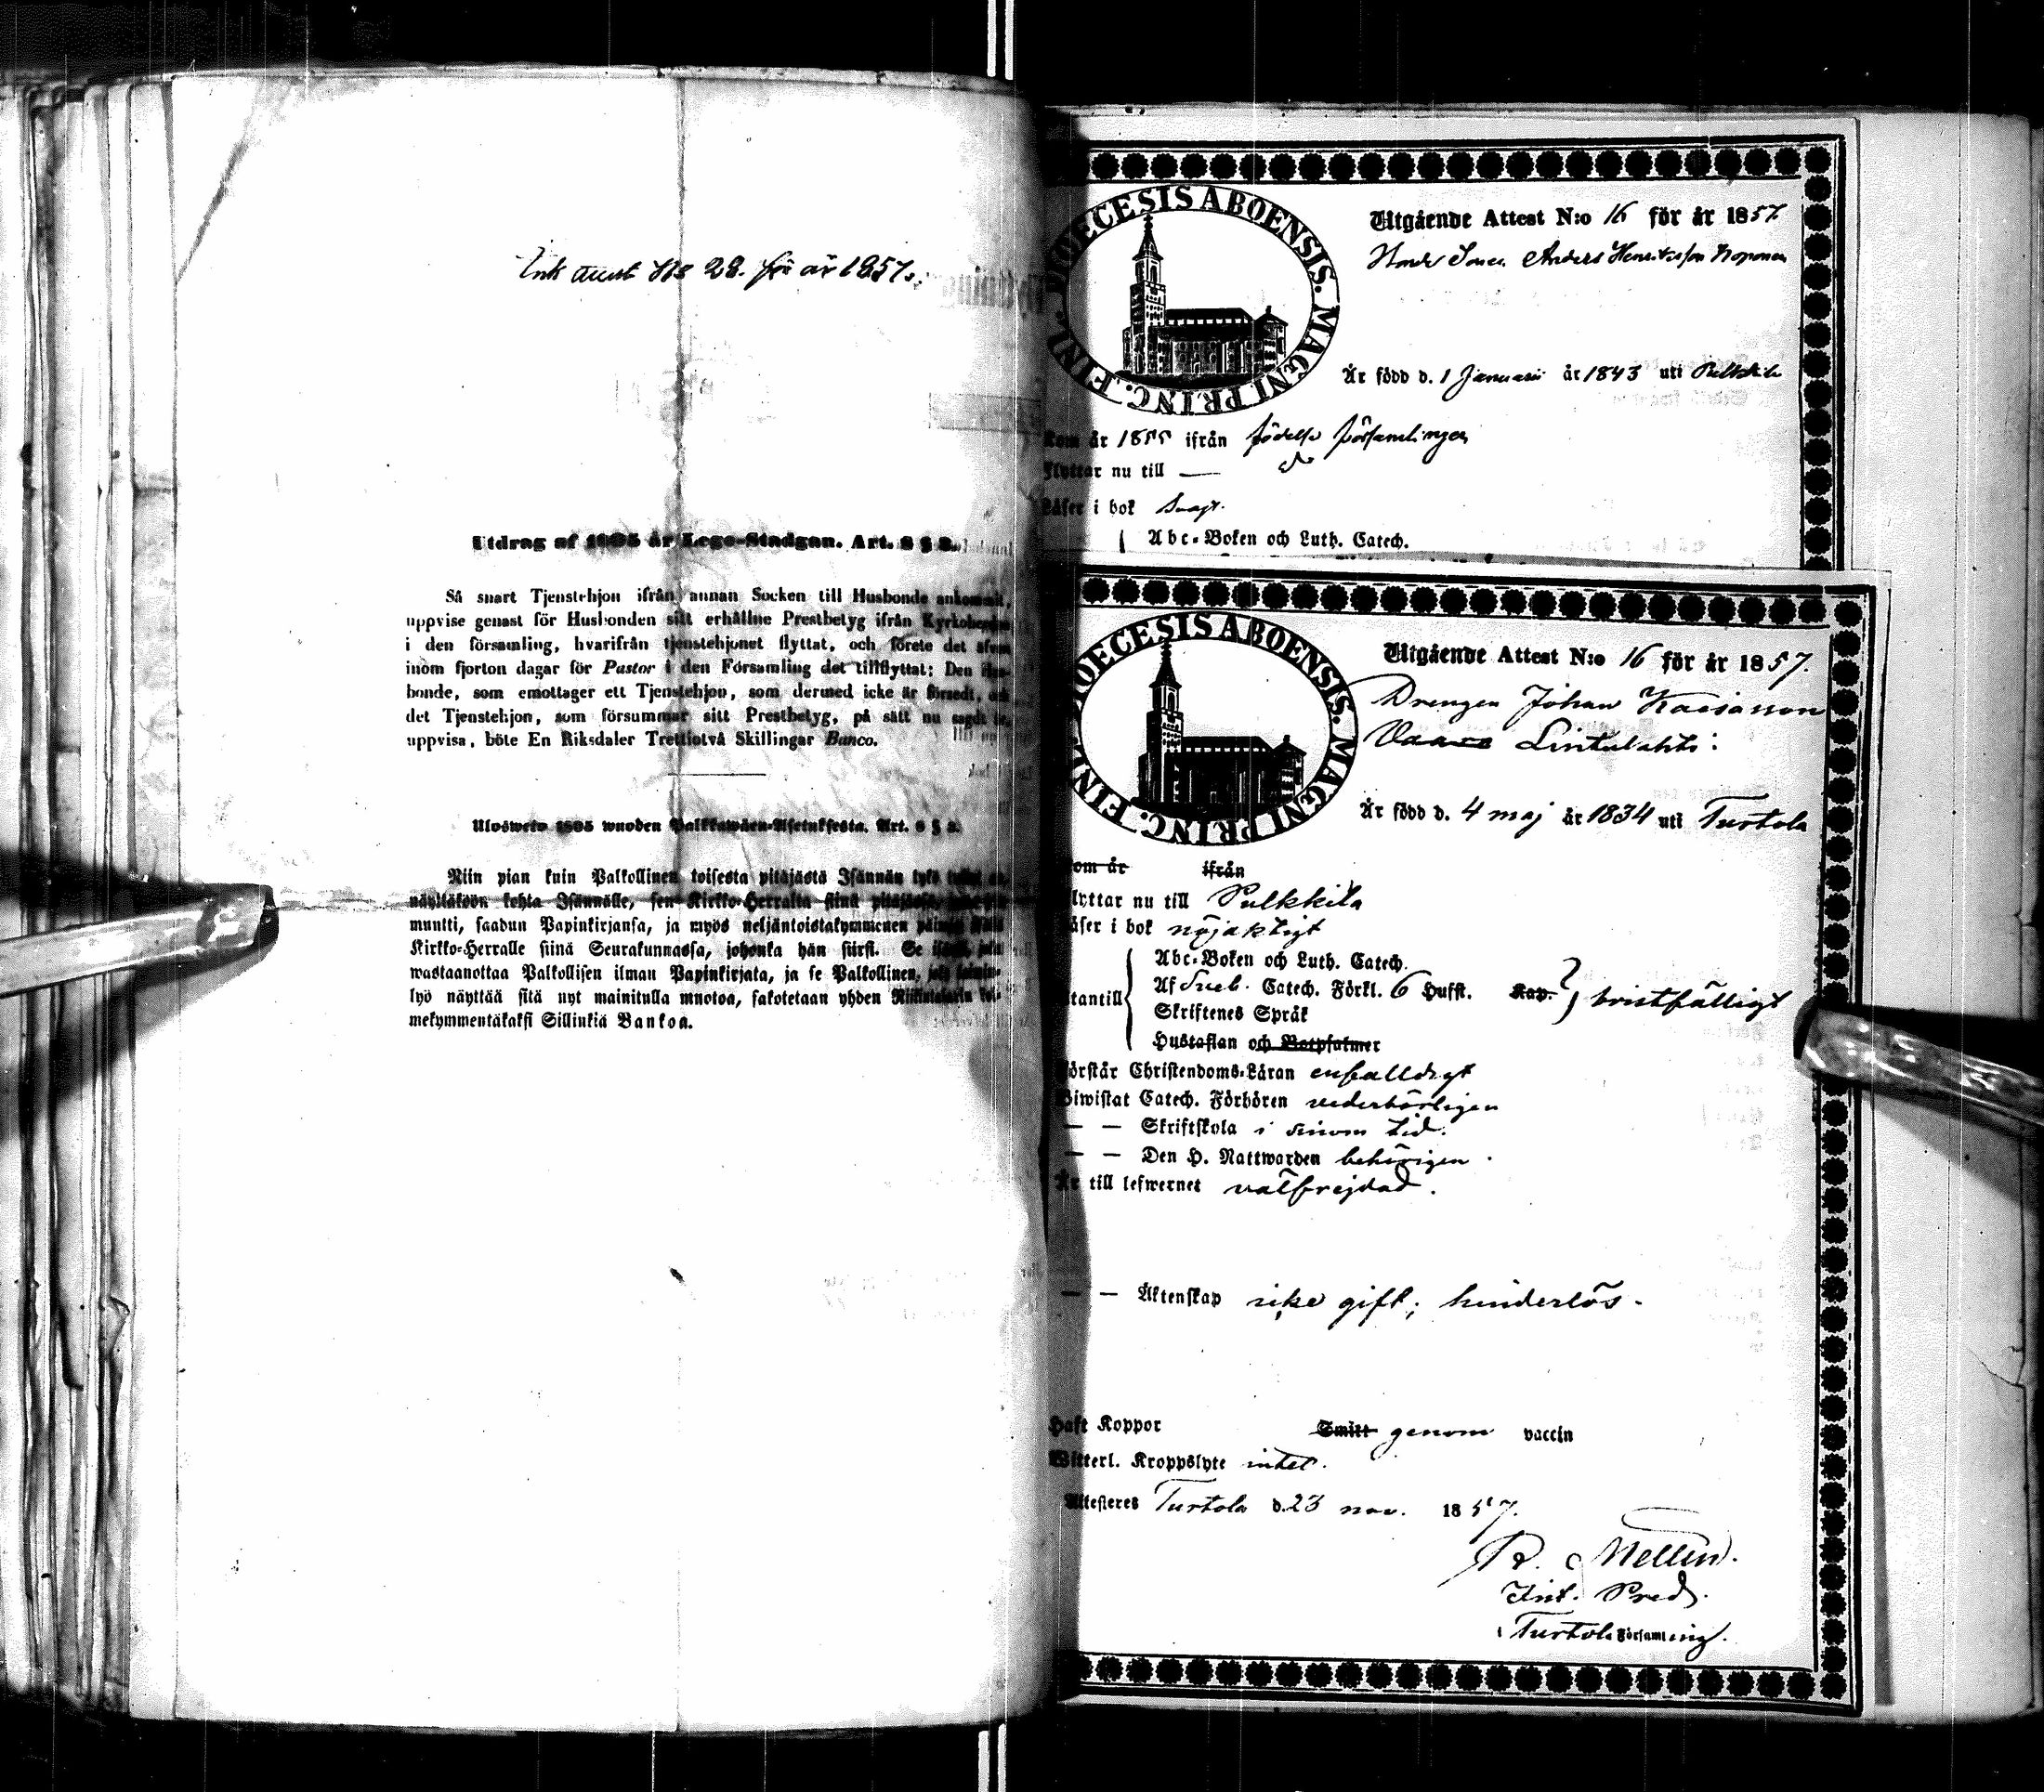 Ink attest No 28. för år 1857.
Utdrag af 1805 år Lego-Stadgan. Art. 8 § 8.
Så snart Tjenstehjon ifrån annan Socken till Husbonde ankommit,
uppvise genast för Husbonden sitt erhållne Prestbetyg ifrån Kyrkoherden
i den församling, hvarifrån tjenstehjonet flyttat, och förete det äfven
inom fjorton dagar för Pastor i den Församling det tillflyttat; Den Hus-
bonde, som emottager ett Tjenstehjon, som dermed icke är försedt, och
det Tjenstehjon, som försummar sitt Prestbetyg, på sätt nu sagdt är,
uppvisa, böte En Riksdaler Trettiotvå Skillingar Banco.
Uloswetö 1805 wuoden Palkkawäen-Asetuksesta. Art. 8 § 8.
Niin pian kuin Palkollinen toisesta pitäjästä Isännän tykö
näyttäköön kohta Isännälle, sen Kirkko-Herralta siinä pitäjässä,
muutti, saadun Papinkirjansa, ja myös neljäntoistakymmenen päiwän
Kirkko-Herralle siinä Seurakunnassa, johonka hän siirsi. Se
wastaanottaa Palkollisen ilman Papinkirjata, ja se Palkollinen, joka
lyö näyttää sitä nyt mainitulla muotoa, sakotetaan yhden Riikintalarin kol-
mekymmentäkaksi Sillinkiä Bankoa.
DIOECESIS ABOENSIS. MAGNI PRINC. FINL.
Utgående Attest N:o 16 för år 1857
Anders Henriksson Koponen
Är född d. 1 Januarii år 1843 uti
Kom år 1855 ifrån födelse församlingen
Flyttar nu till — do
Läser i bok svagt.
Abc-Boken och Luth. Catech.
DIOECESIS ABOENSIS. MAGNI PRINC. FINL.
Utgående Attest N:o 16 för år 1857.
Drengen Johan
Lintulahti:
Är född d. 4 maj år 1834 uti Turtola
Kom år ifrån
Flyttar nu till Pulkkila
Läser i bok nöjaktigt
Abc-Boken och Luth. Catech.
Utantill Af Sveb. Catech. Förkl. 6 Hufst. Kap. bristfälligt
Skriftenes Språk
Hustaflan och Botpsalmer
Förstår Christendoms-Läran enfalldigt
Biwistat Catech. Förhören vederbörligen
— — Skriftskola i sinom tid.
— — Den H. Nattwarden behörigen.
Är till lefwernet välfrejdad.
— — Äktenskap icke gift; hinderlös.
Haft Koppor Smitt genom vaccin
Witterl. Kroppslyte intet.
Attesteras Turtola d. 23 nov. 1857.
R. Mellin.
Int. Pred.
i Turtola Församling.